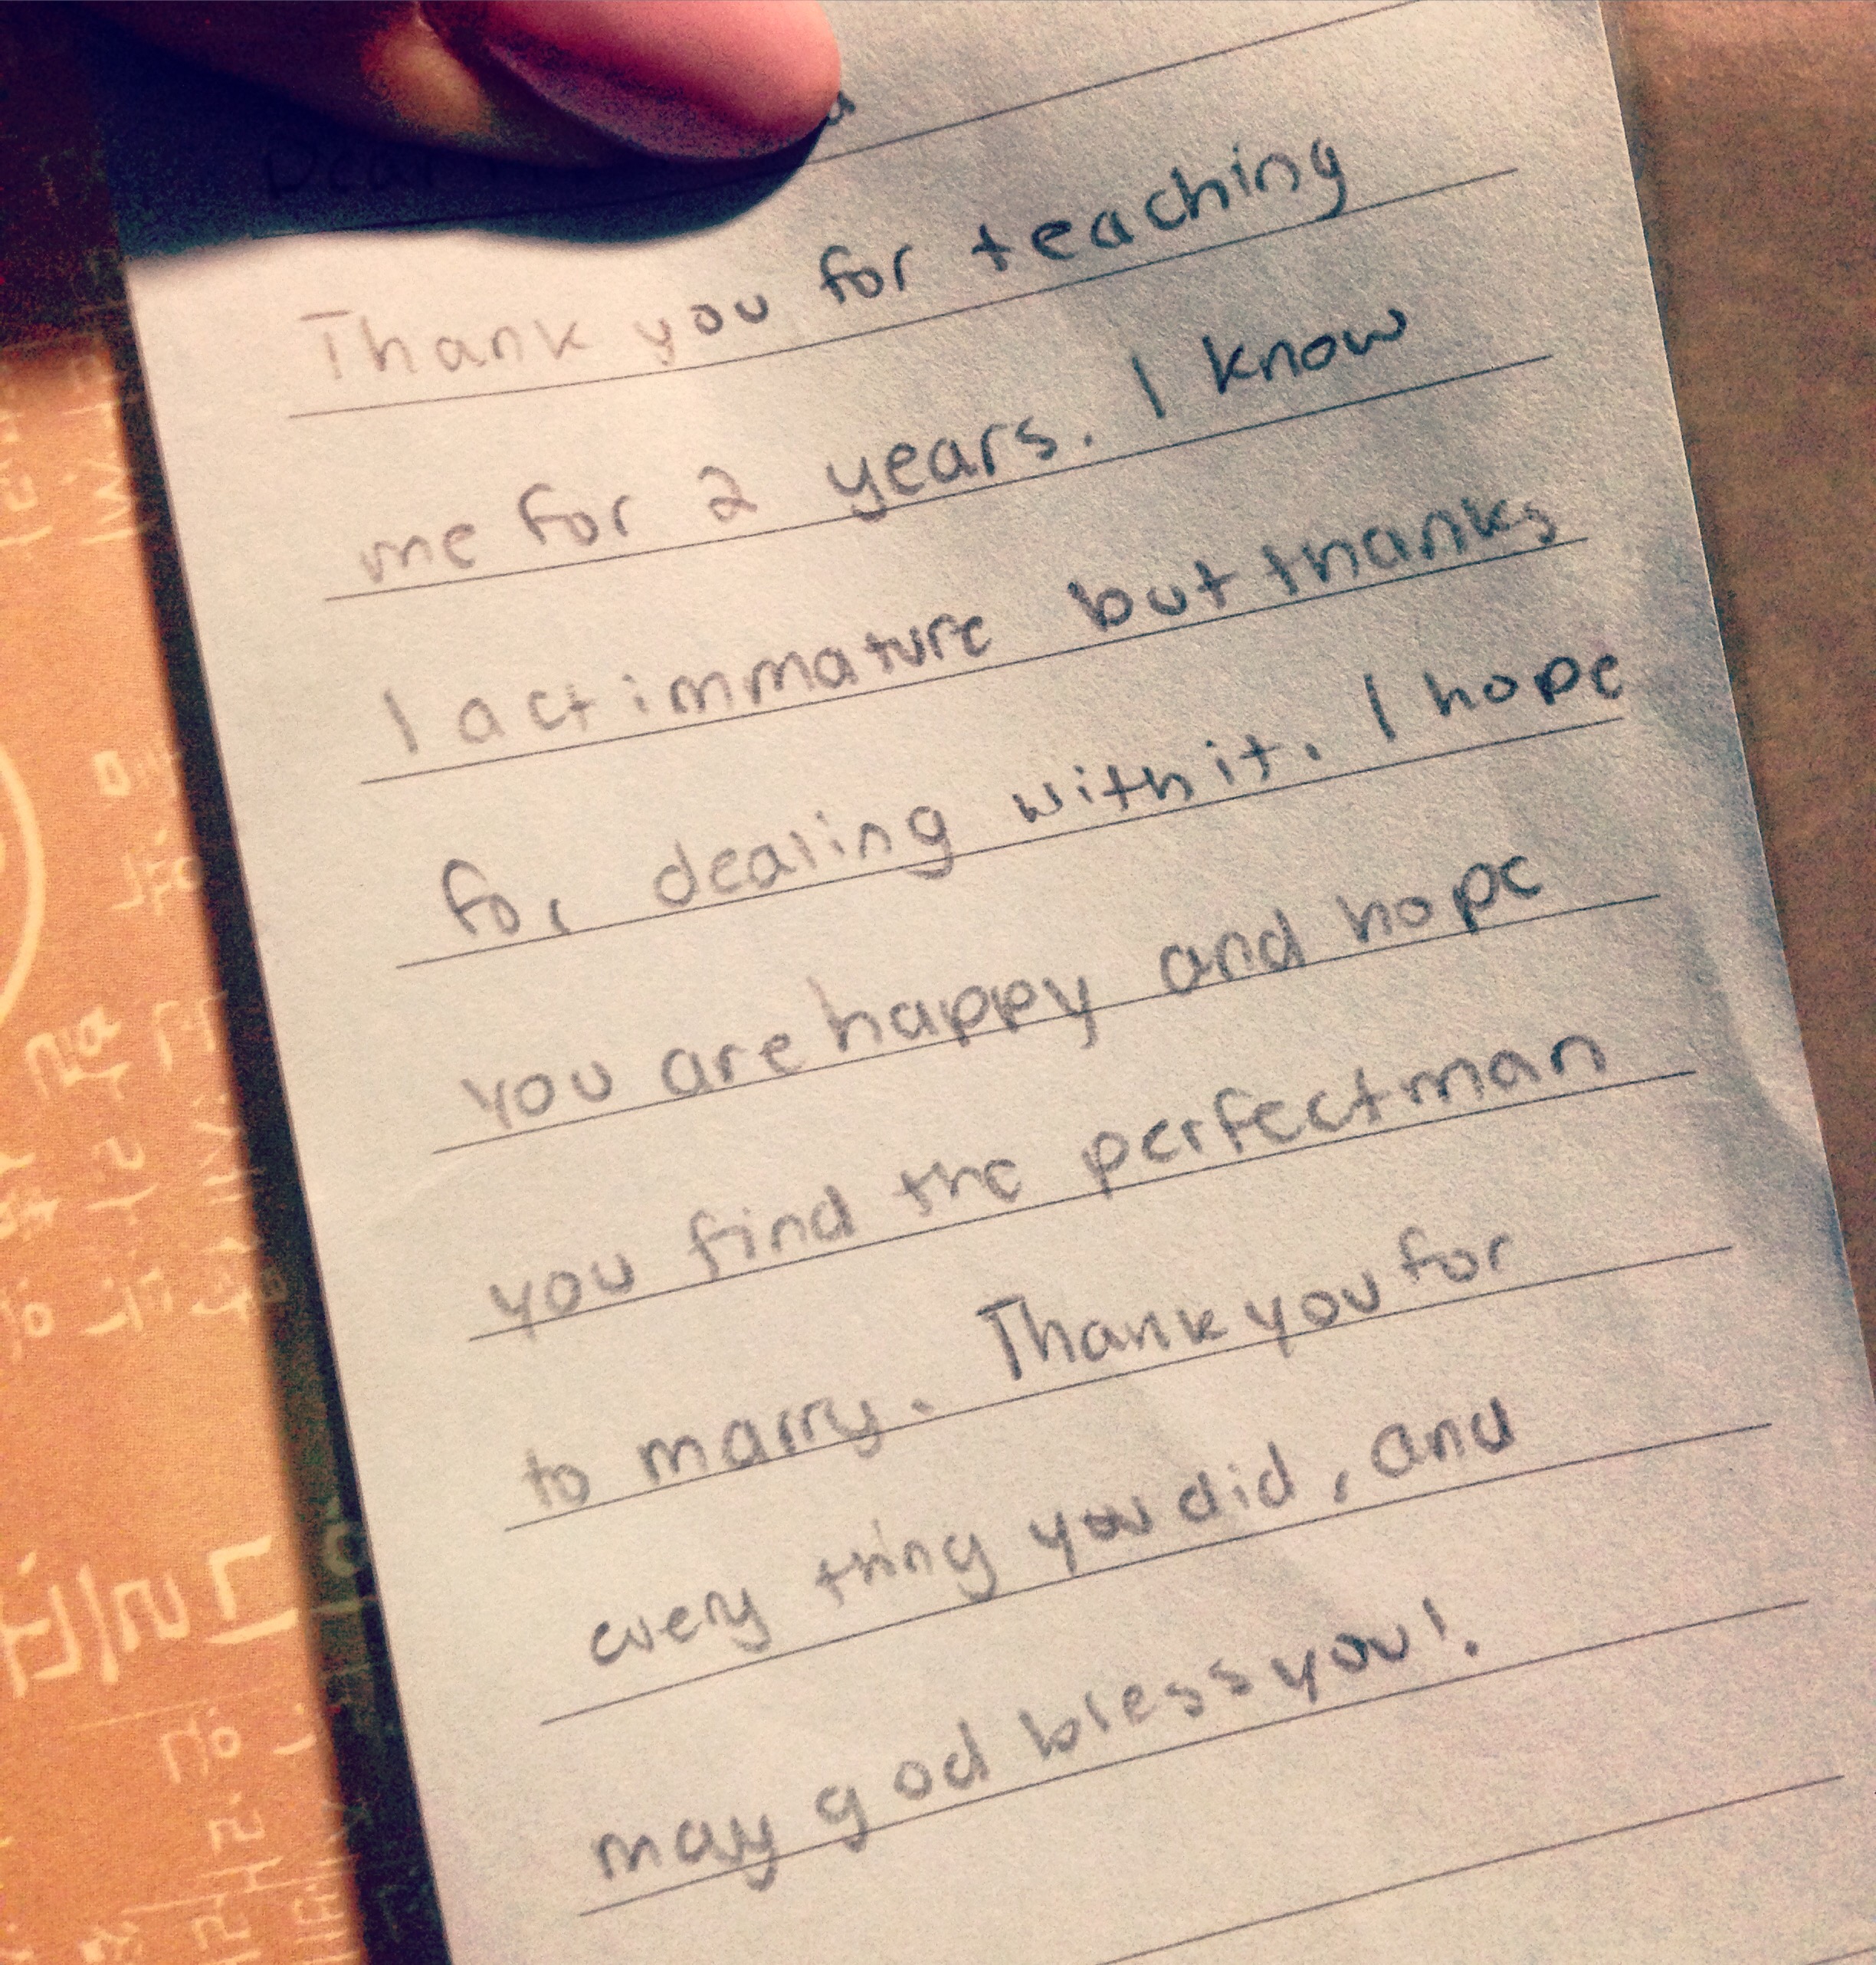 Dear
Thank you for teaching
me for 2 years. I know
I act immature but thanks
for dealing with it. I hope
you are happy and hope
you find the perfect man
to marry. Thank you for
every thing you did, and
may god bless you!.